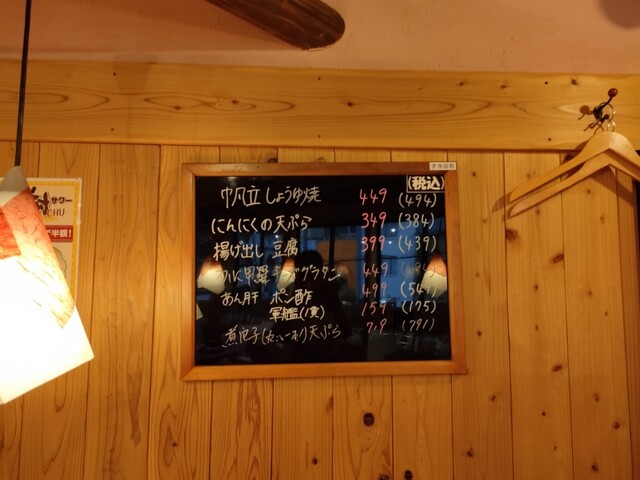 (税込)
帆立しょうゆ焼 449 (494)
にんにくの天ぷら 349 (384)
揚げ出し豆腐 399 (439)
カルパ甲羅チーズグラタン 449
あん肝 ポン酢 499
軍艦(1貫) 159 (175)
天ぷら 719 (791)
サワー
CHU
半額!